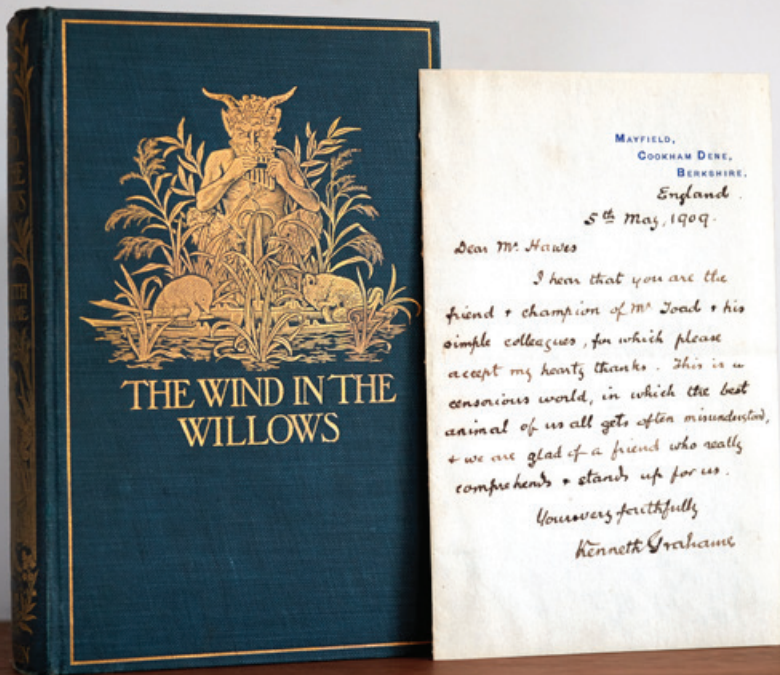 THE WIND IN THE
WILLOWS
MAYFIELD,
COOKHAM DENE,
BERKSHIRE.
England.
5th May, 1909.
Dear Mr. Hawes
I hear that you are the
friend & champion of Mr Toad & his
simple colleagues, for which please
accept my hearty thanks. This is a
censorious world, in which the best
animal of us all gets often misunderstood,
& we are glad of a friend who really
comprehends & stands up for us.
Yours very faithfully
Kenneth Grahame